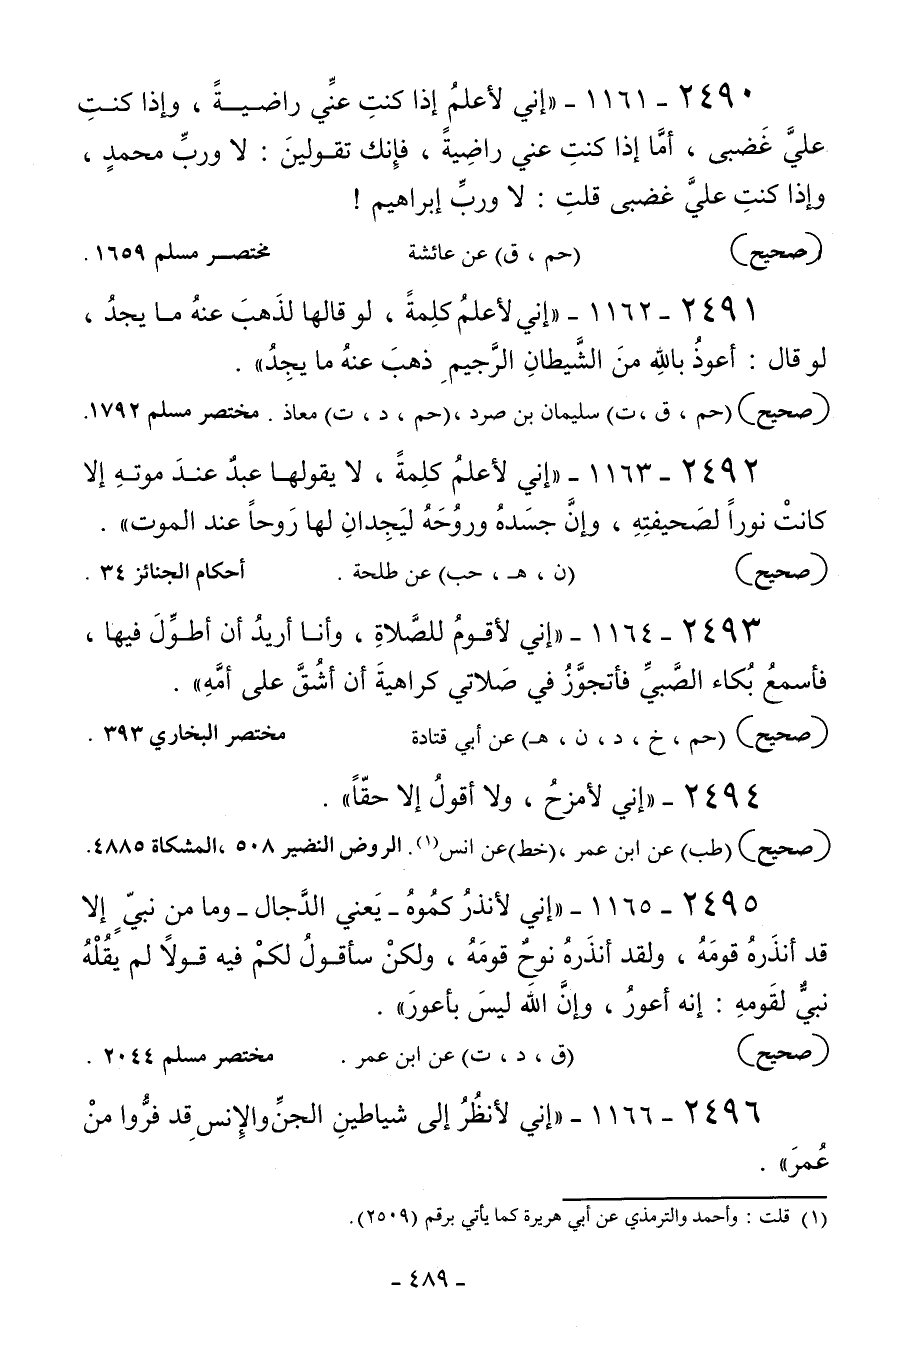 ٢٤٩٠ - ١١٦١ - «إني لأعلمُ إذا كنتِ عنِّي راضيـةً ، وإذا كنـتِ
عليَّ غَضبى ، أمَّا إذا كنتِ عني راضِيةً ، فإنك تقـولينَ : لا وربِّ محمدٍ ،
وإذا كنتِ عليَّ غضبى قلتِ : لا وربِّ إبراهيم !
(صحيح) (حم ، ق) عن عائشة مختصـر مسلم ١٦٥٩ .
٢٤٩١ - ١١٦٢ - «إني لأعلمُ كلِمةً ، لو قالها لذَهبَ عنهُ مـا يجدُ ،
لو قال : أعوذُ باللهِ منَ الشَّيطانِ الرَّجيمِ ذهبَ عنهُ ما يجِدُ» .
(صحيح) (حم ، ق ،ت) سليمان بن صرد ،(حم ، د ، ت) معاذ . مختصر مسلم ١٧٩٢.
٢٤٩٢ - ١١٦٣ - «إني لأعلمُ كلمةً ، لا يقولهـا عبدٌ عنـدَ موتـهِ إلا
كانتْ نوراً لصَحيفتِهِ ، وإنَّ جسَدهُ وروُحَهُ ليَجِدانِ لها رَوحاً عند الموت» .
(صحيح) (ن ، هـ ، حب) عن طلحة . أحكام الجنائز ٣٤ .
٢٤٩٣ - ١١٦٤ - «إني لأقـومُ للصَّلاةِ ، وأنـا أريدُ أن أطـوِّلَ فيها ،
فأسمعُ بُكاء الصَّبيِّ فأتجوَّزُ في صَلاتي كراهيةَ أن أشُقَّ على أمَّهِ» .
(صحيح) (حم ، خ ، د ، ن ، هـ) عن أبي قتادة مختصر البخاري ٣٩٣ .
٢٤٩٤ - «إني لأمزحُ ، ولا أقولُ إلا حقّاً» .
(صحيح) (طب) عن ابن عمر ،(خط)عن انس(١). الروض النضير ٥٠٨ ،المشكاة ٤٨٨٥.
٢٤٩٥ - ١١٦٥ - «إني لأنذرُ كمُوهُ - يَعني الدَّجال - وما من نبيّ إلا
قد أنذَرهُ قومَهُ ، ولقد أنذَرهُ نوحٌ قومَهُ ، ولكنْ سأقـولُ لكمْ فيه قـولاً لم يقُلْهُ
نبيٌّ لقَومهِ : إنه أعورُ ، وإنَّ اللهَ ليسَ بأعورَ» .
(صحيح) (ق ، د ، ت) عن ابن عمر . مختصر مسلم ٢٠٤٤ .
٢٤٩٦ - ١١٦٦ - «إني لأنظُرُ إلى شياطينِ الجنِّ والإِنسِ قد فرُّوا منْ
عُمرَ» .
(١) قلت : وأحمد والترمذي عن أبي هريرة كما يأتي برقم (٢٥٠٩).
- ٤٨٩ -